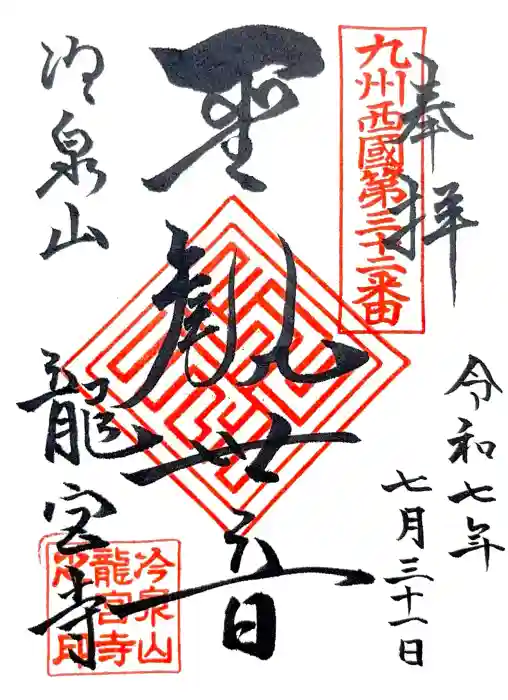 奉拝
九州西國第三十二番
令和七年
七月三十一日
聖観世音
冷泉山
龍宮寺
冷泉山
龍宮寺
印